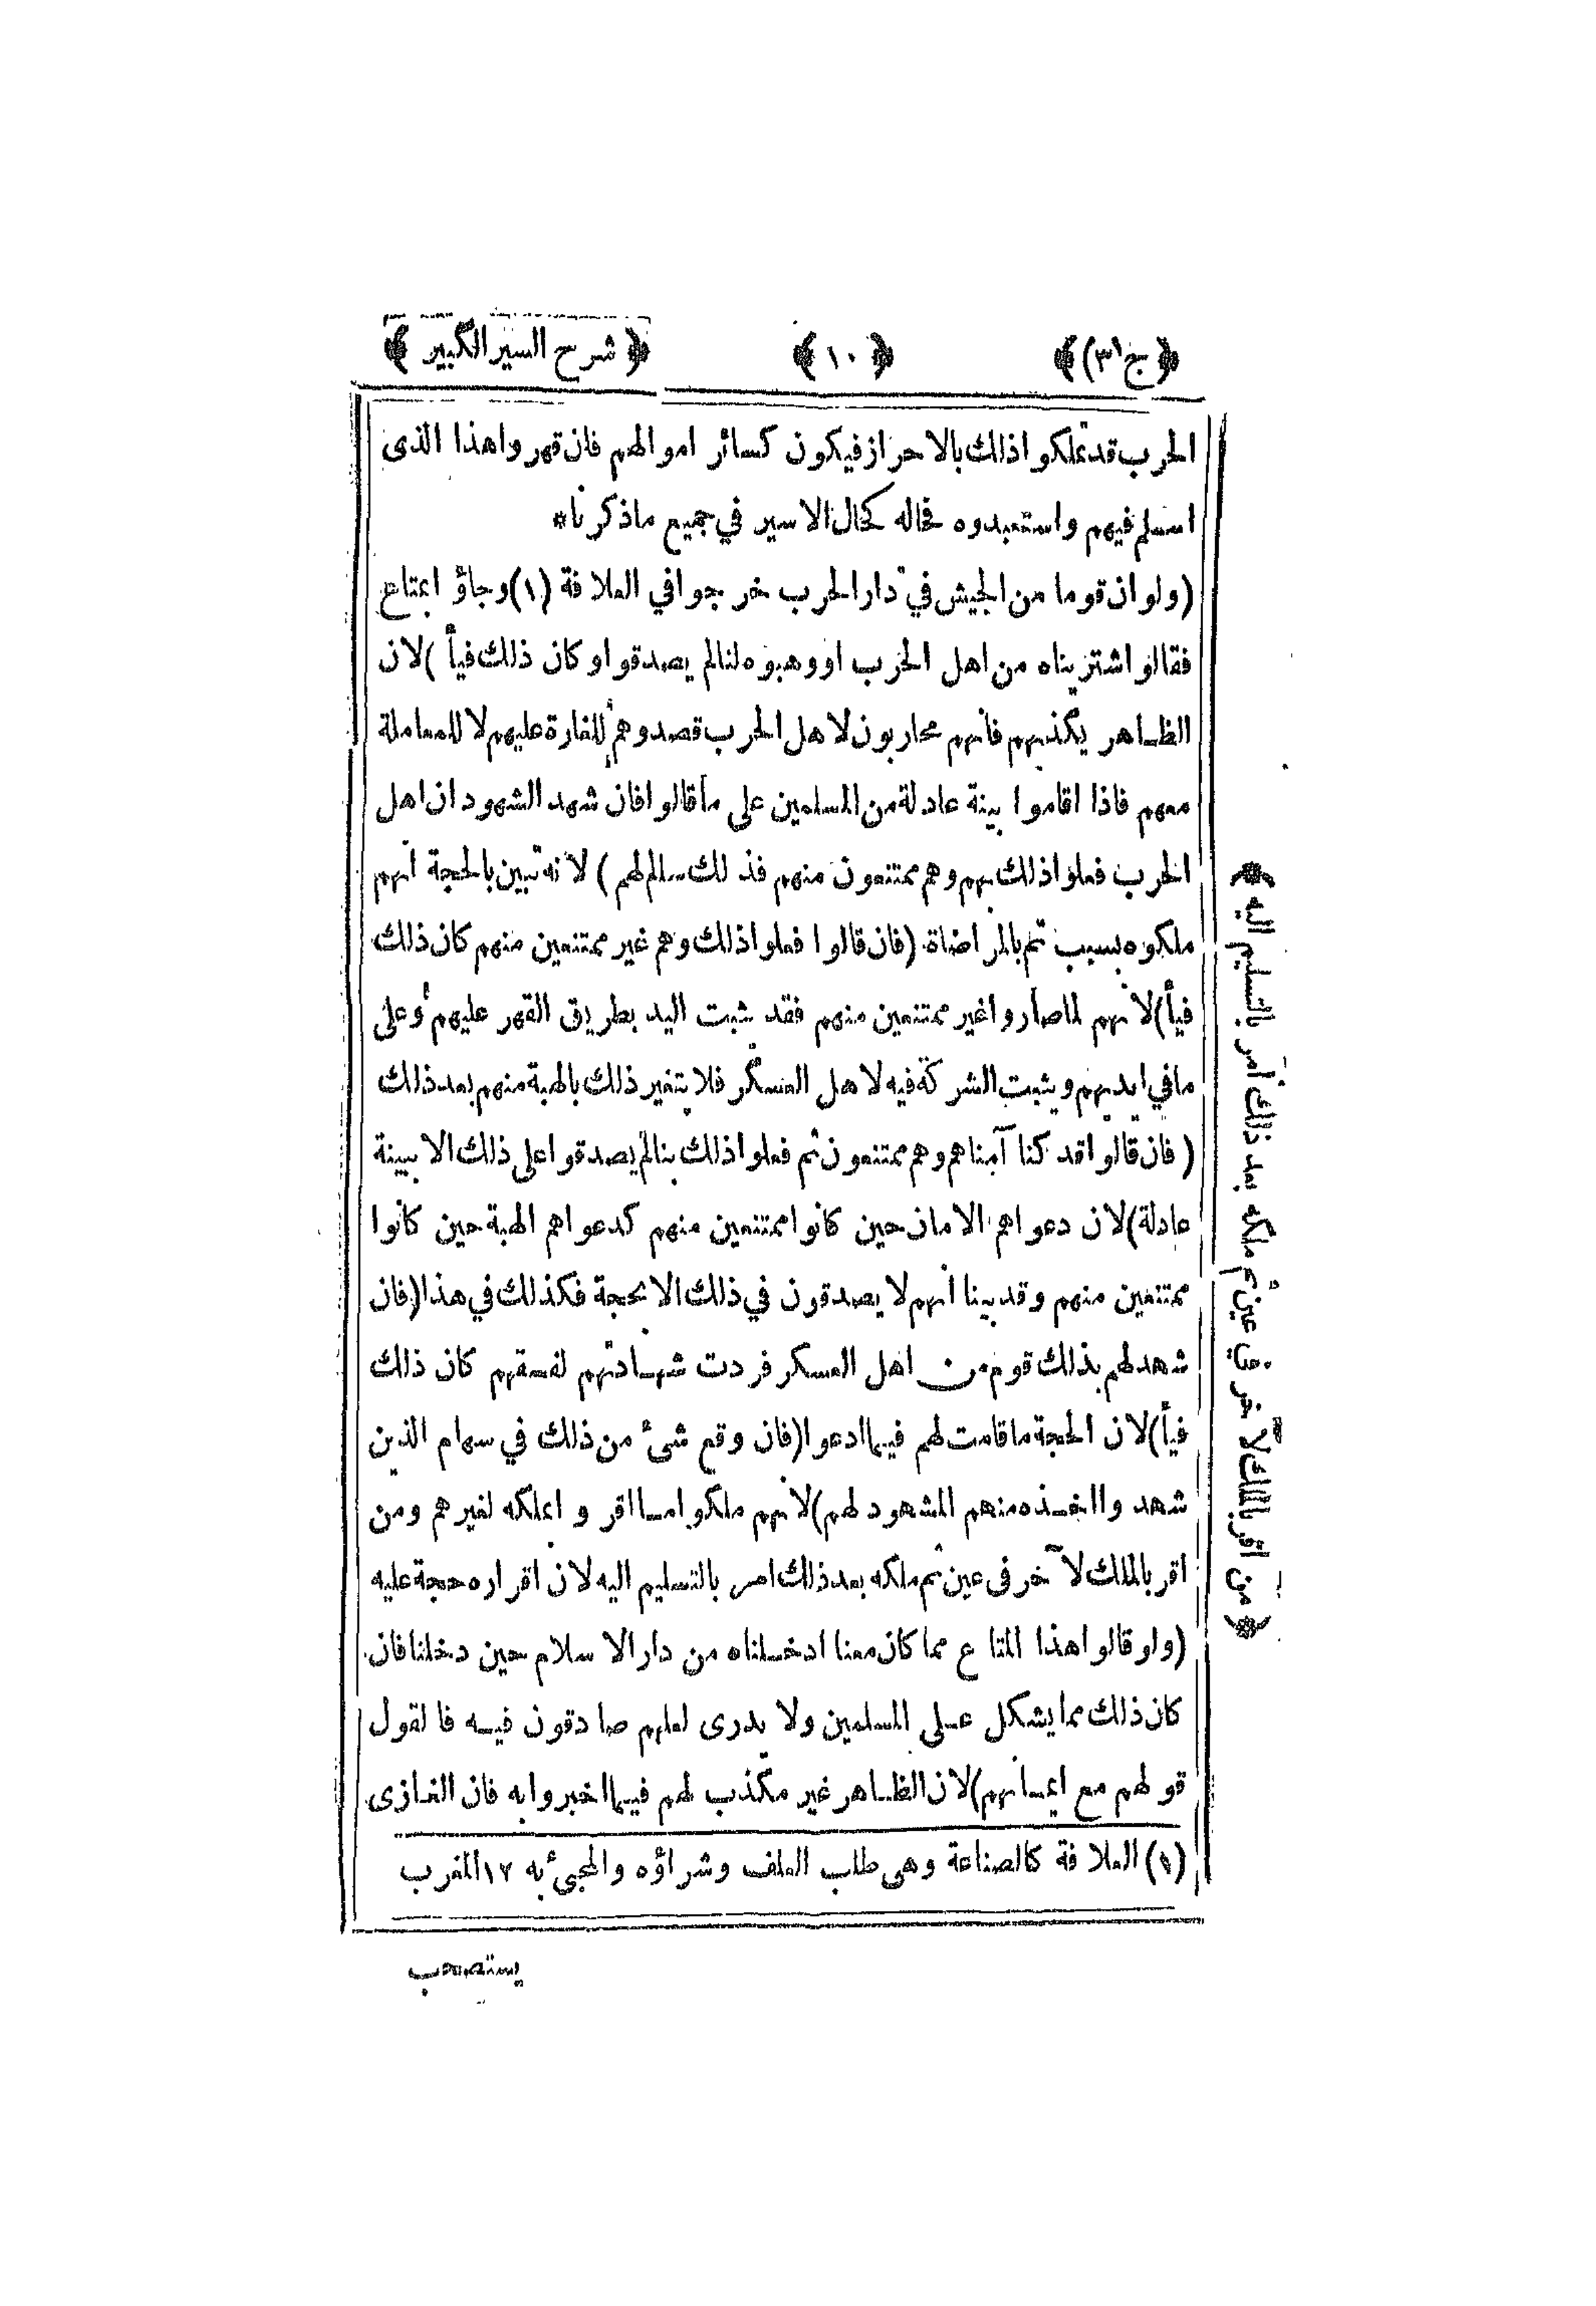 ﴿ ج (٣) ﴾ ﴿ ١٠ ﴾ ﴿ شرح السير الكبير ﴾
الحرب قد تملكوا ذلك بالاحراز فيكون كسائر اموالهم فان قهروا هذا الذى
اسلم فيهم واستعبدوه فحاله كحال الاسير في جميع ماذكرنا*
(ولو ان قوما من الجيش في دار الحرب خرجوا في العلافة (١) وجاؤ ابمتاع
فقالوا اشتريناه من اهل الحرب او وهبوه لنا لم يصدقوا وكان ذلك فيأ) لان
الظاهر يكذبهم فانهم محاربون لاهل الحرب قصدوهم للغارة عليهم لا للمعاملة
معهم فاذا اقاموا بينة عادلة من المسلمين على ماقالوا فان شهد الشهود ان اهل
الحرب فعلوا ذلك بهم وهم ممتنعون منهم فذلك سالم لهم) لانه تبين بالحجة انهم
ملكوه بسبب تم بالمراضاة (فان قالوا فعلوا ذلك وهم غير ممتنعين منهم كان ذلك
فيأ) لانهم لما صاروا غير ممتنعين منهم فقد ثبت اليد بطريق القهر عليهم وعلى
مافي ايديهم ويثبت الشركة فيه لاهل العسكر فلا يتغير ذلك بالهبة منهم بعد ذلك
(فان قالوا قد كنا آمناهم وهم ممتنعون ثم فعلوا ذلك بنا لم يصدقوا على ذلك الا ببينة
عادلة) لان دعواهم الامان حين كانوا ممتنعين منهم كدعواهم الهبة حين كانوا
ممتنعين منهم وقد بينا انهم لا يصدقون في ذلك الا بحجة فكذلك في هذا (فان
شهد لهم بذلك قوم من اهل العسكر فردت شهادتهم لفسقهم كان ذلك
فيأ) لان الحجة ما قامت لهم فيما ادعوا (فان وقع شئ من ذلك في سهام الذين
شهدوا اخذه منهم المشهود لهم) لانهم ملكوا ما اقروا بملكه لغيرهم ومن
اقر بالملك لآخر فى عين ثم ملكه بعد ذلك امر بالتسليم اليه لان اقراره حجة عليه
(ولو قالوا هذا المتاع مما كان معنا ادخلناه من دار الاسلام حين دخلنا فان
كان ذلك مما يشكل على المسلمين ولا يدرى لعلهم صادقون فيه فالقول
قولهم مع ايمانهم) لان الظاهر غير مكذب لهم فيما اخبروا به فان الغازى
﴿ من اقر بالملك لآخر في عين ثم ملكه بعد ذلك امر بالتسليم اليه ﴾
(١) العلافة كالصناعة وهى طلب العلف وشراؤه والمجئ به ١٢ المغرب
يستصحب